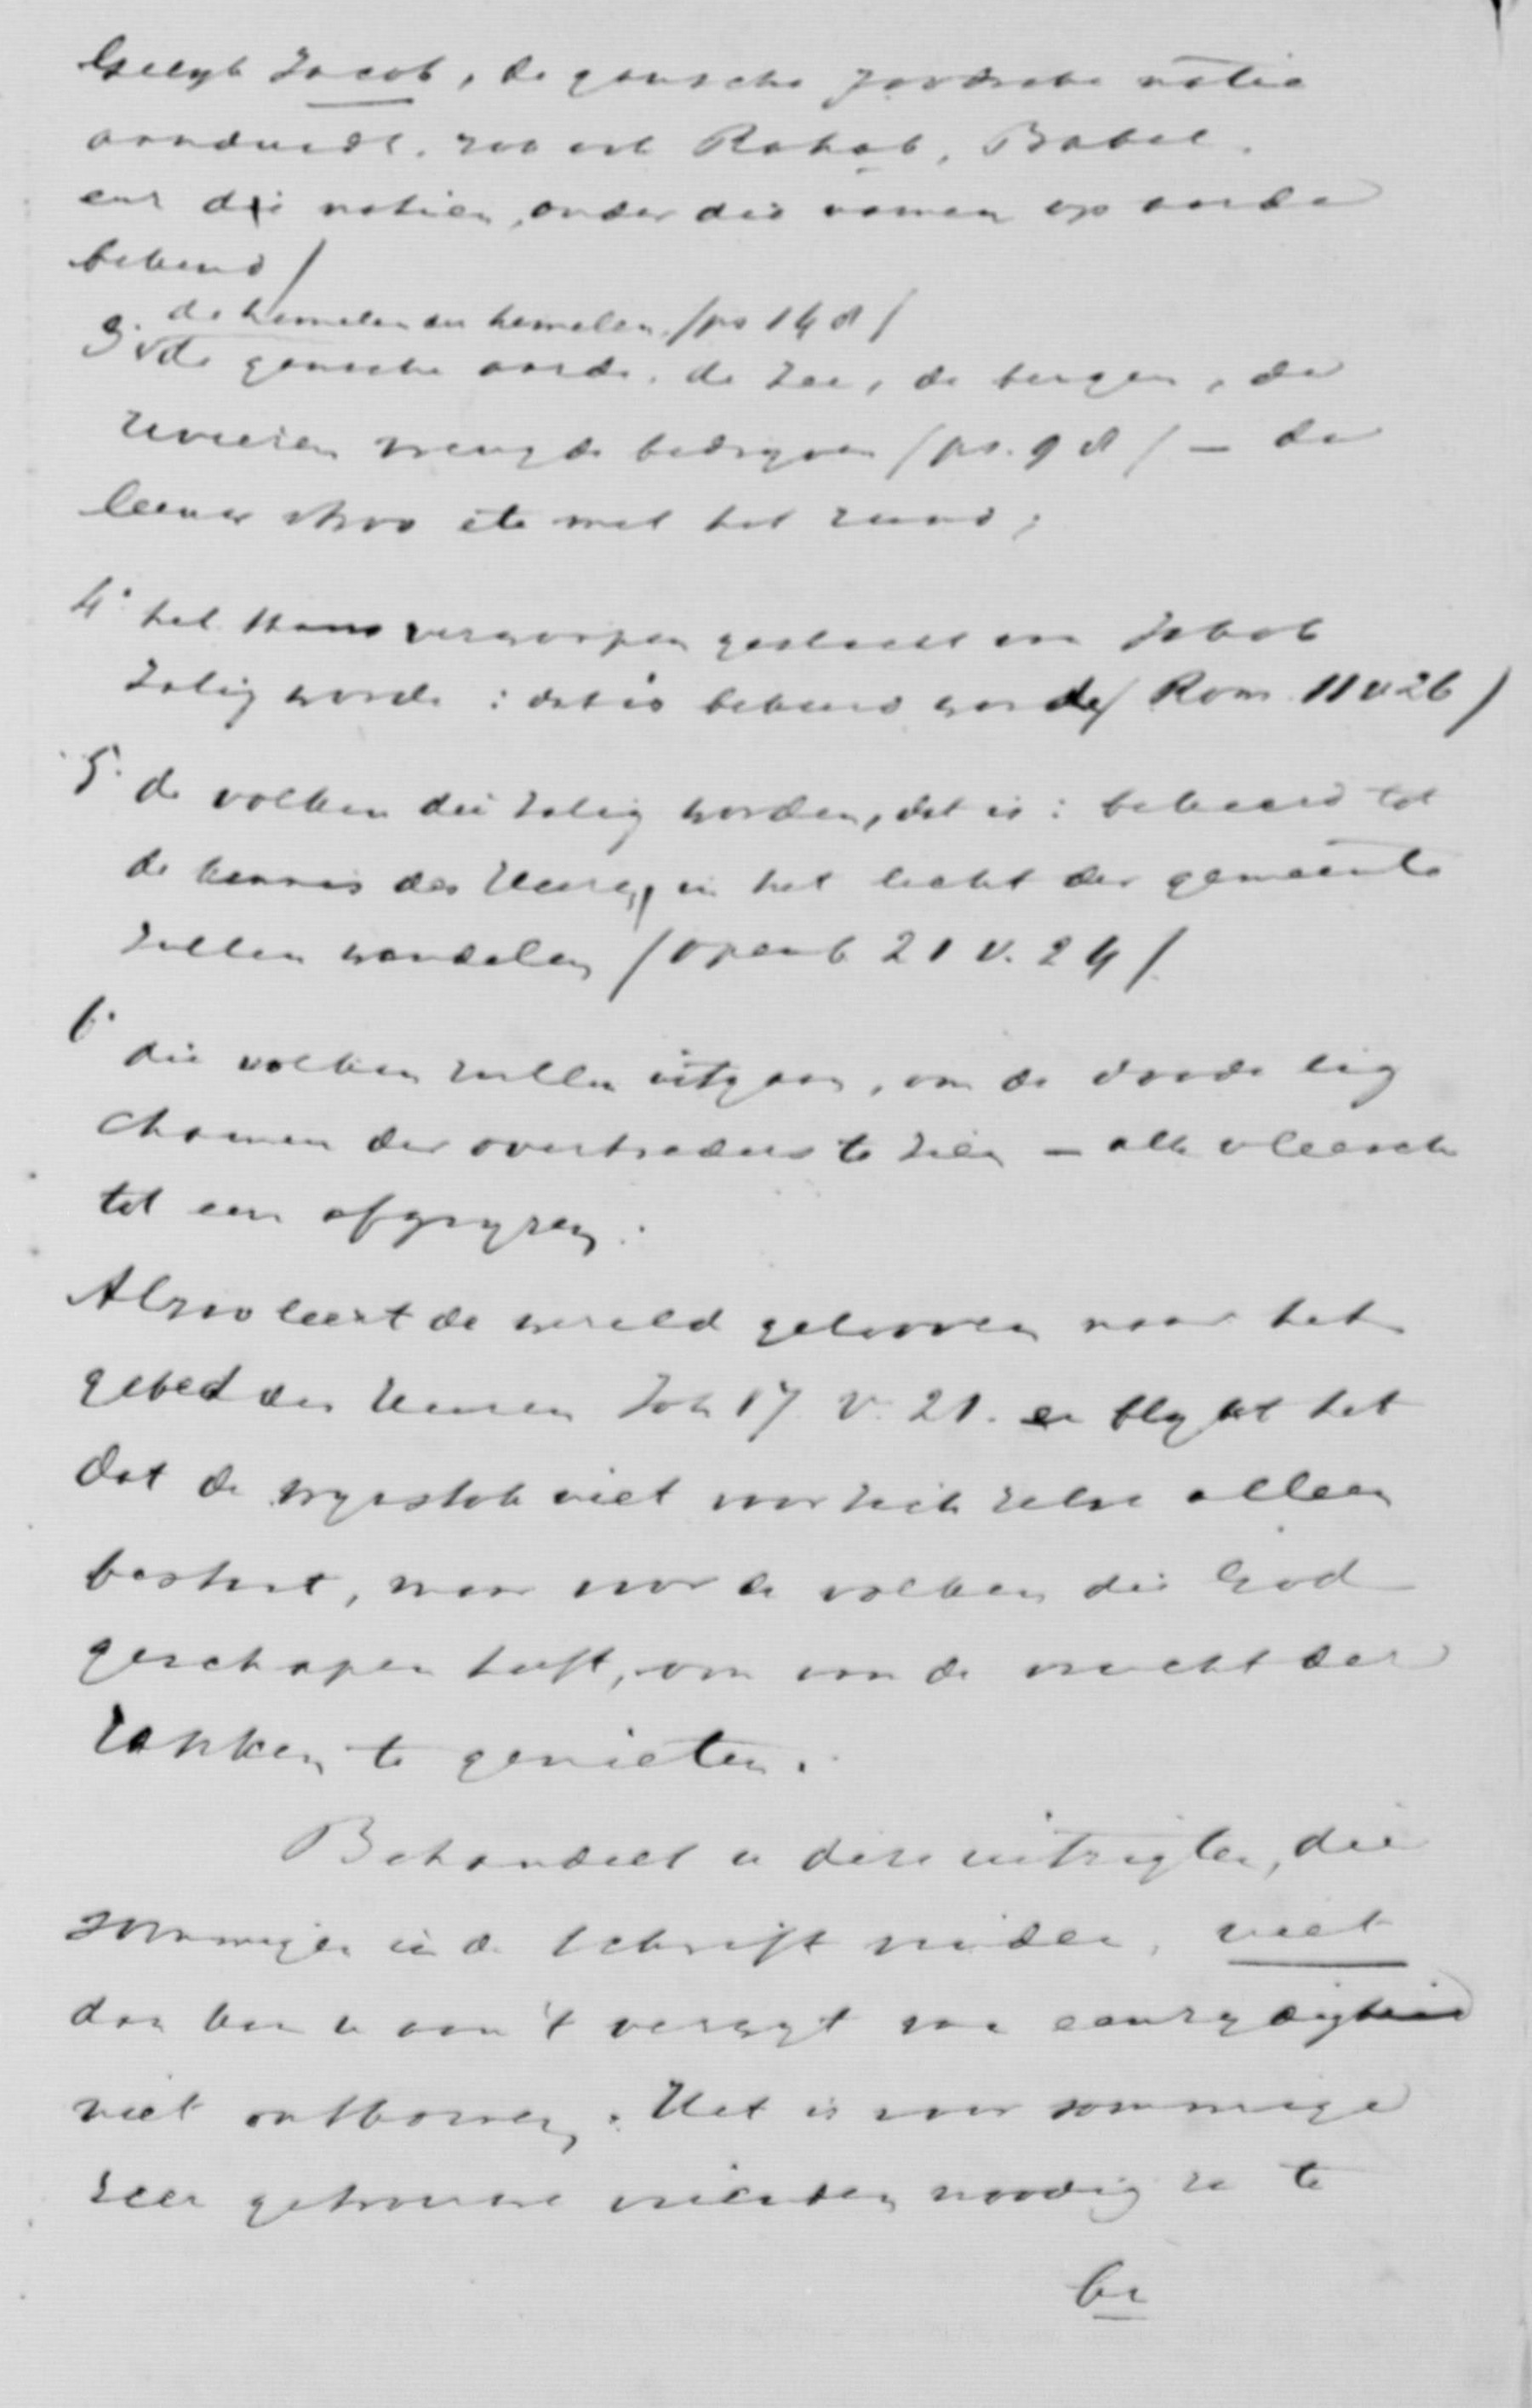 Gelyk Jacob, de gansche joodsche natie
aanduidt, zoo ook Rahab, Babel,
enz die natien, onder die namen op aarde
bekend /
de hemelen der hemelen / ps 148 /
3. de gansche aarde, de zee, de bergen, de
rivieren vreugde bedryven / ps. 98 / – de
leeuw stroo ete met het rund;
4° het verworpen geslacht van Jakob
zalig worde : dat is bekeerd worde / Rom 11 v 26 /
5. de volken die zalig worden, dat is : bekeerd tot
de kennis des Heeren, in het licht der gemeente
zullen wandelen / openb 21 v. 24 /
6° die volken zullen uitgaan, om de doode lig
chamen der overtreders te zien – alle vleesch
tot een afgryzen.
Alzoo leert de wereld gelooven naar het
gebed des Heeren Joh 17 v. 21. en blykt het
dat de wynstok niet voor zich zelve alleen
bestaat, maar voor de volken die God
geschapen heeft, om van de vrucht der
ranken te genieten.
Behandelt u deze uitzigten, die
sommigen in de schrift vinden, niet
dan kan u aan 't verwyt van eenzydigheid
niet ontkomen. Het is voor sommige
zeer getrouwe vrienden noodig ze te
be